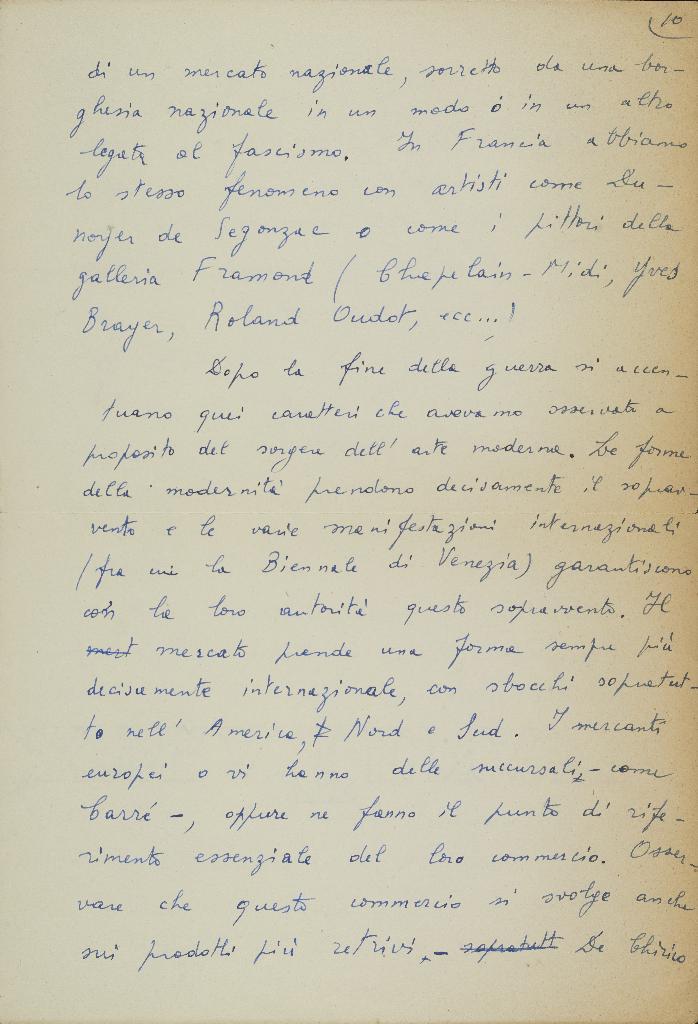 10
di un mercato nazionale, sorretto da una bor-
ghesia nazionale in un modo o in un altro
legata al fascismo. In Francia abbiamo
lo stesso fenomeno con artisti come Du-
noyer de Segonzac o come i pittori della
galleria Framond (Chapelain-Midi, Yves
Brayer, Roland Oudot, ecc...)
Dopo la fine della guerra si accen-
tuano quei caratteri che avevamo osservato a
proposito del sorgere dell'arte moderna. Le forme
della modernità prendono decisamente il soprav-
vento e le varie manifestazioni internazionali
(fra cui la Biennale di Venezia) garantiscono
con la loro autorità questo sopravvento. Il
mert mercato prende una forma sempre più
decisamente internazionale, con sbocchi sopratut-
to nell'America, Nord e Sud. I mercanti
europei o vi hanno delle succursali, - come
Carré -, oppure ne fanno il punto di rife-
rimento essenziale del loro commercio. Osser-
vare che questo commercio si svolge anche
sui prodotti più retrivi, - sopratutt De Chirico